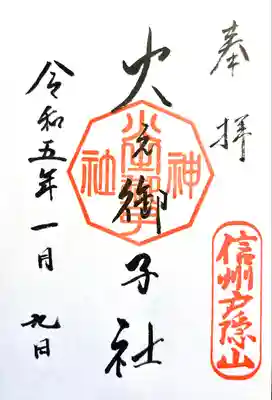 奉拝
信州戸隠山
火之御子社
神社
令和五年一月九日